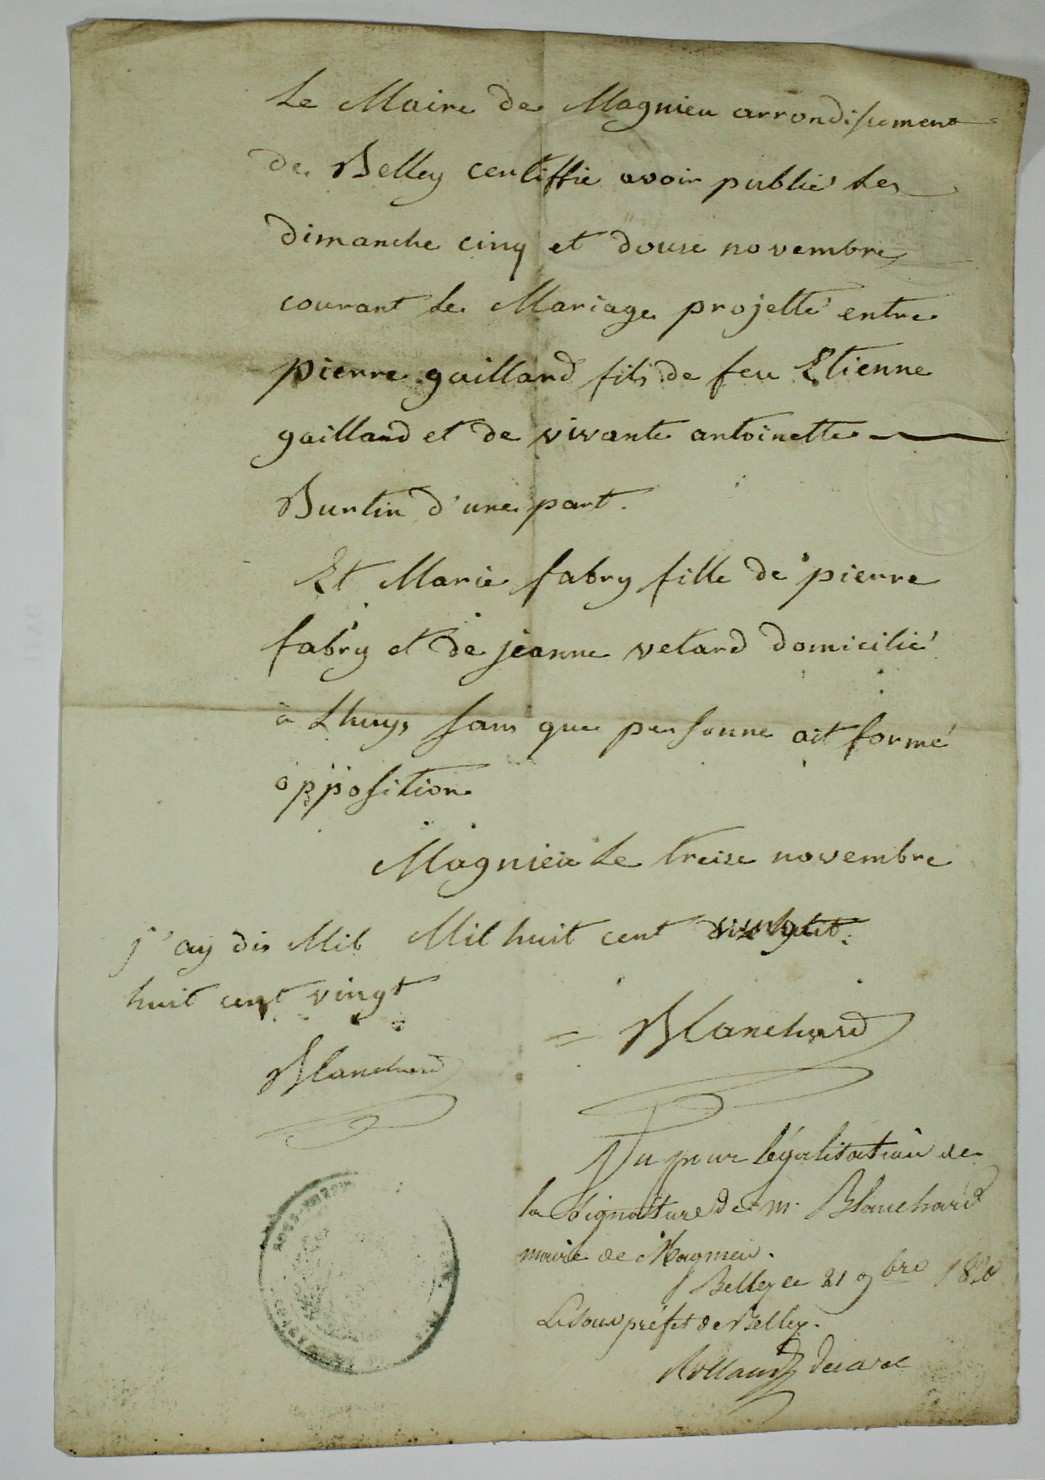 Le Maire de Magnieu arrondissement
de Belley certiffie avoir publié les
dimanche cinq et douse novembre
courant le Mariage projetté entre
pierre gaillard fils de feu Etienne
gaillard et de vivante antoinette
Burtin d'une part.
Et Marie fabry fille de pierre
fabry et de jeanne vetard domicilié
à Lhuys sans que personne ait formé
opposition
Magnieu le treise novembre
Mil huit cent
j'ay dis Mil
huit cent vingt
Blanchard
Blanchard
Vu pour légalisation de
la signature de m. Blanchard
maire de Magnieu.
Belley le 21 9bre 1820
Le sous préfet de Belley.